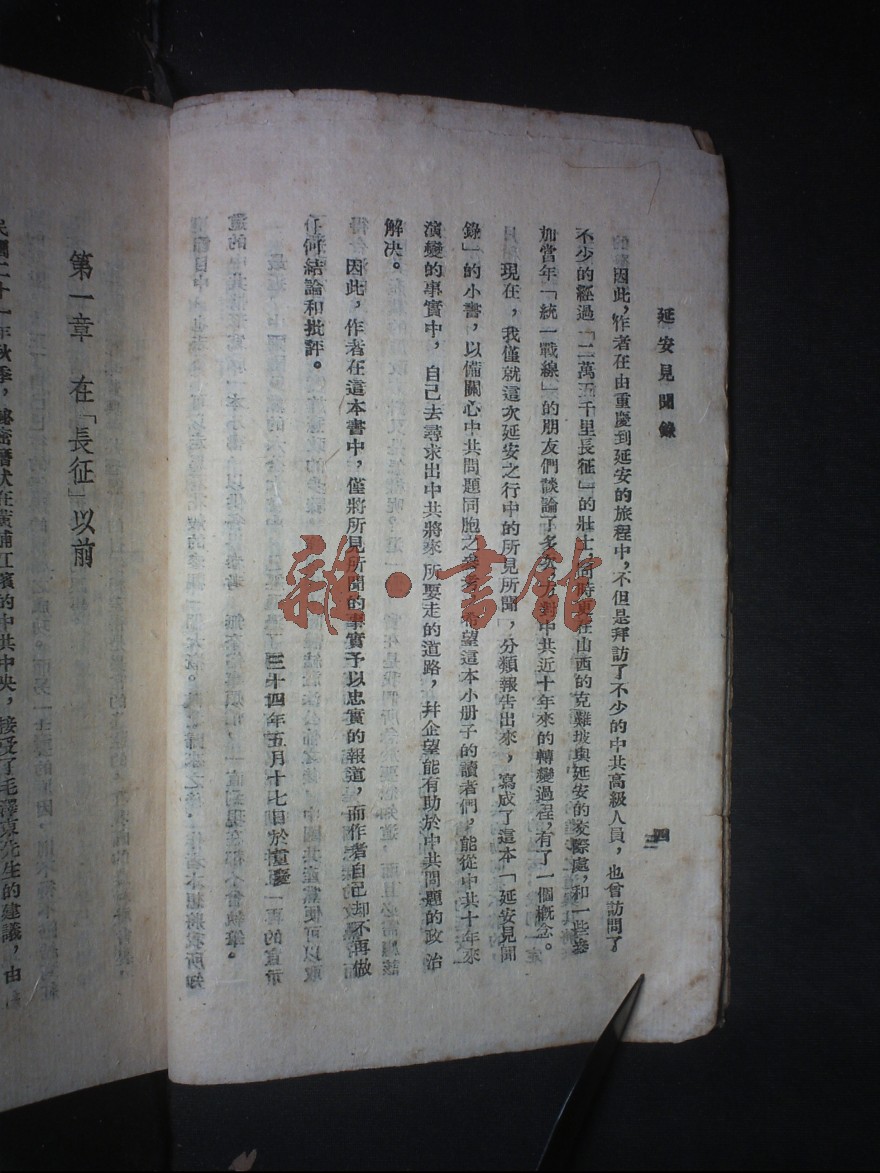 延安見聞錄
四
因此，作者在由重慶到延安的旅程中，不但是拜訪了不少的中共高級人員，也曾訪問了
不少的經過「二萬五千里長征」的壯士，同時更在山西的克難坡與延安的交際處，和一些參
加當年「統一戰線」的朋友們談論了多次，方對中共近十年來的轉變過程，有了一個概念。
現在，我僅就這次延安之行中的所見所聞，分類報告出來，寫成了這本「延安見聞
錄」的小書，以備關心中共問題同胞之參考，希望這本小册子的讀者們，能從中共十年來
演變的事實中，自己去尋求出中共將來所要走的道路，幷企望能有助於中共問題的政治
解决。
因此，作者在這本書中，僅將所見所聞的事實予以忠實的報道，而作者自己却不再做
任何結論和批評。
三十四年五月十七日於重慶
第一章　在「長征」以前
民國二十一年秋季，秘密潛伏在黃浦江濱的中共中央，接受了毛澤東先生的建議，由
雜·書館